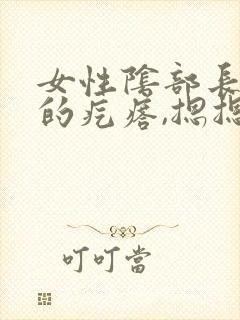 女性陰部長
的疙瘩,摁摁
叮叮當